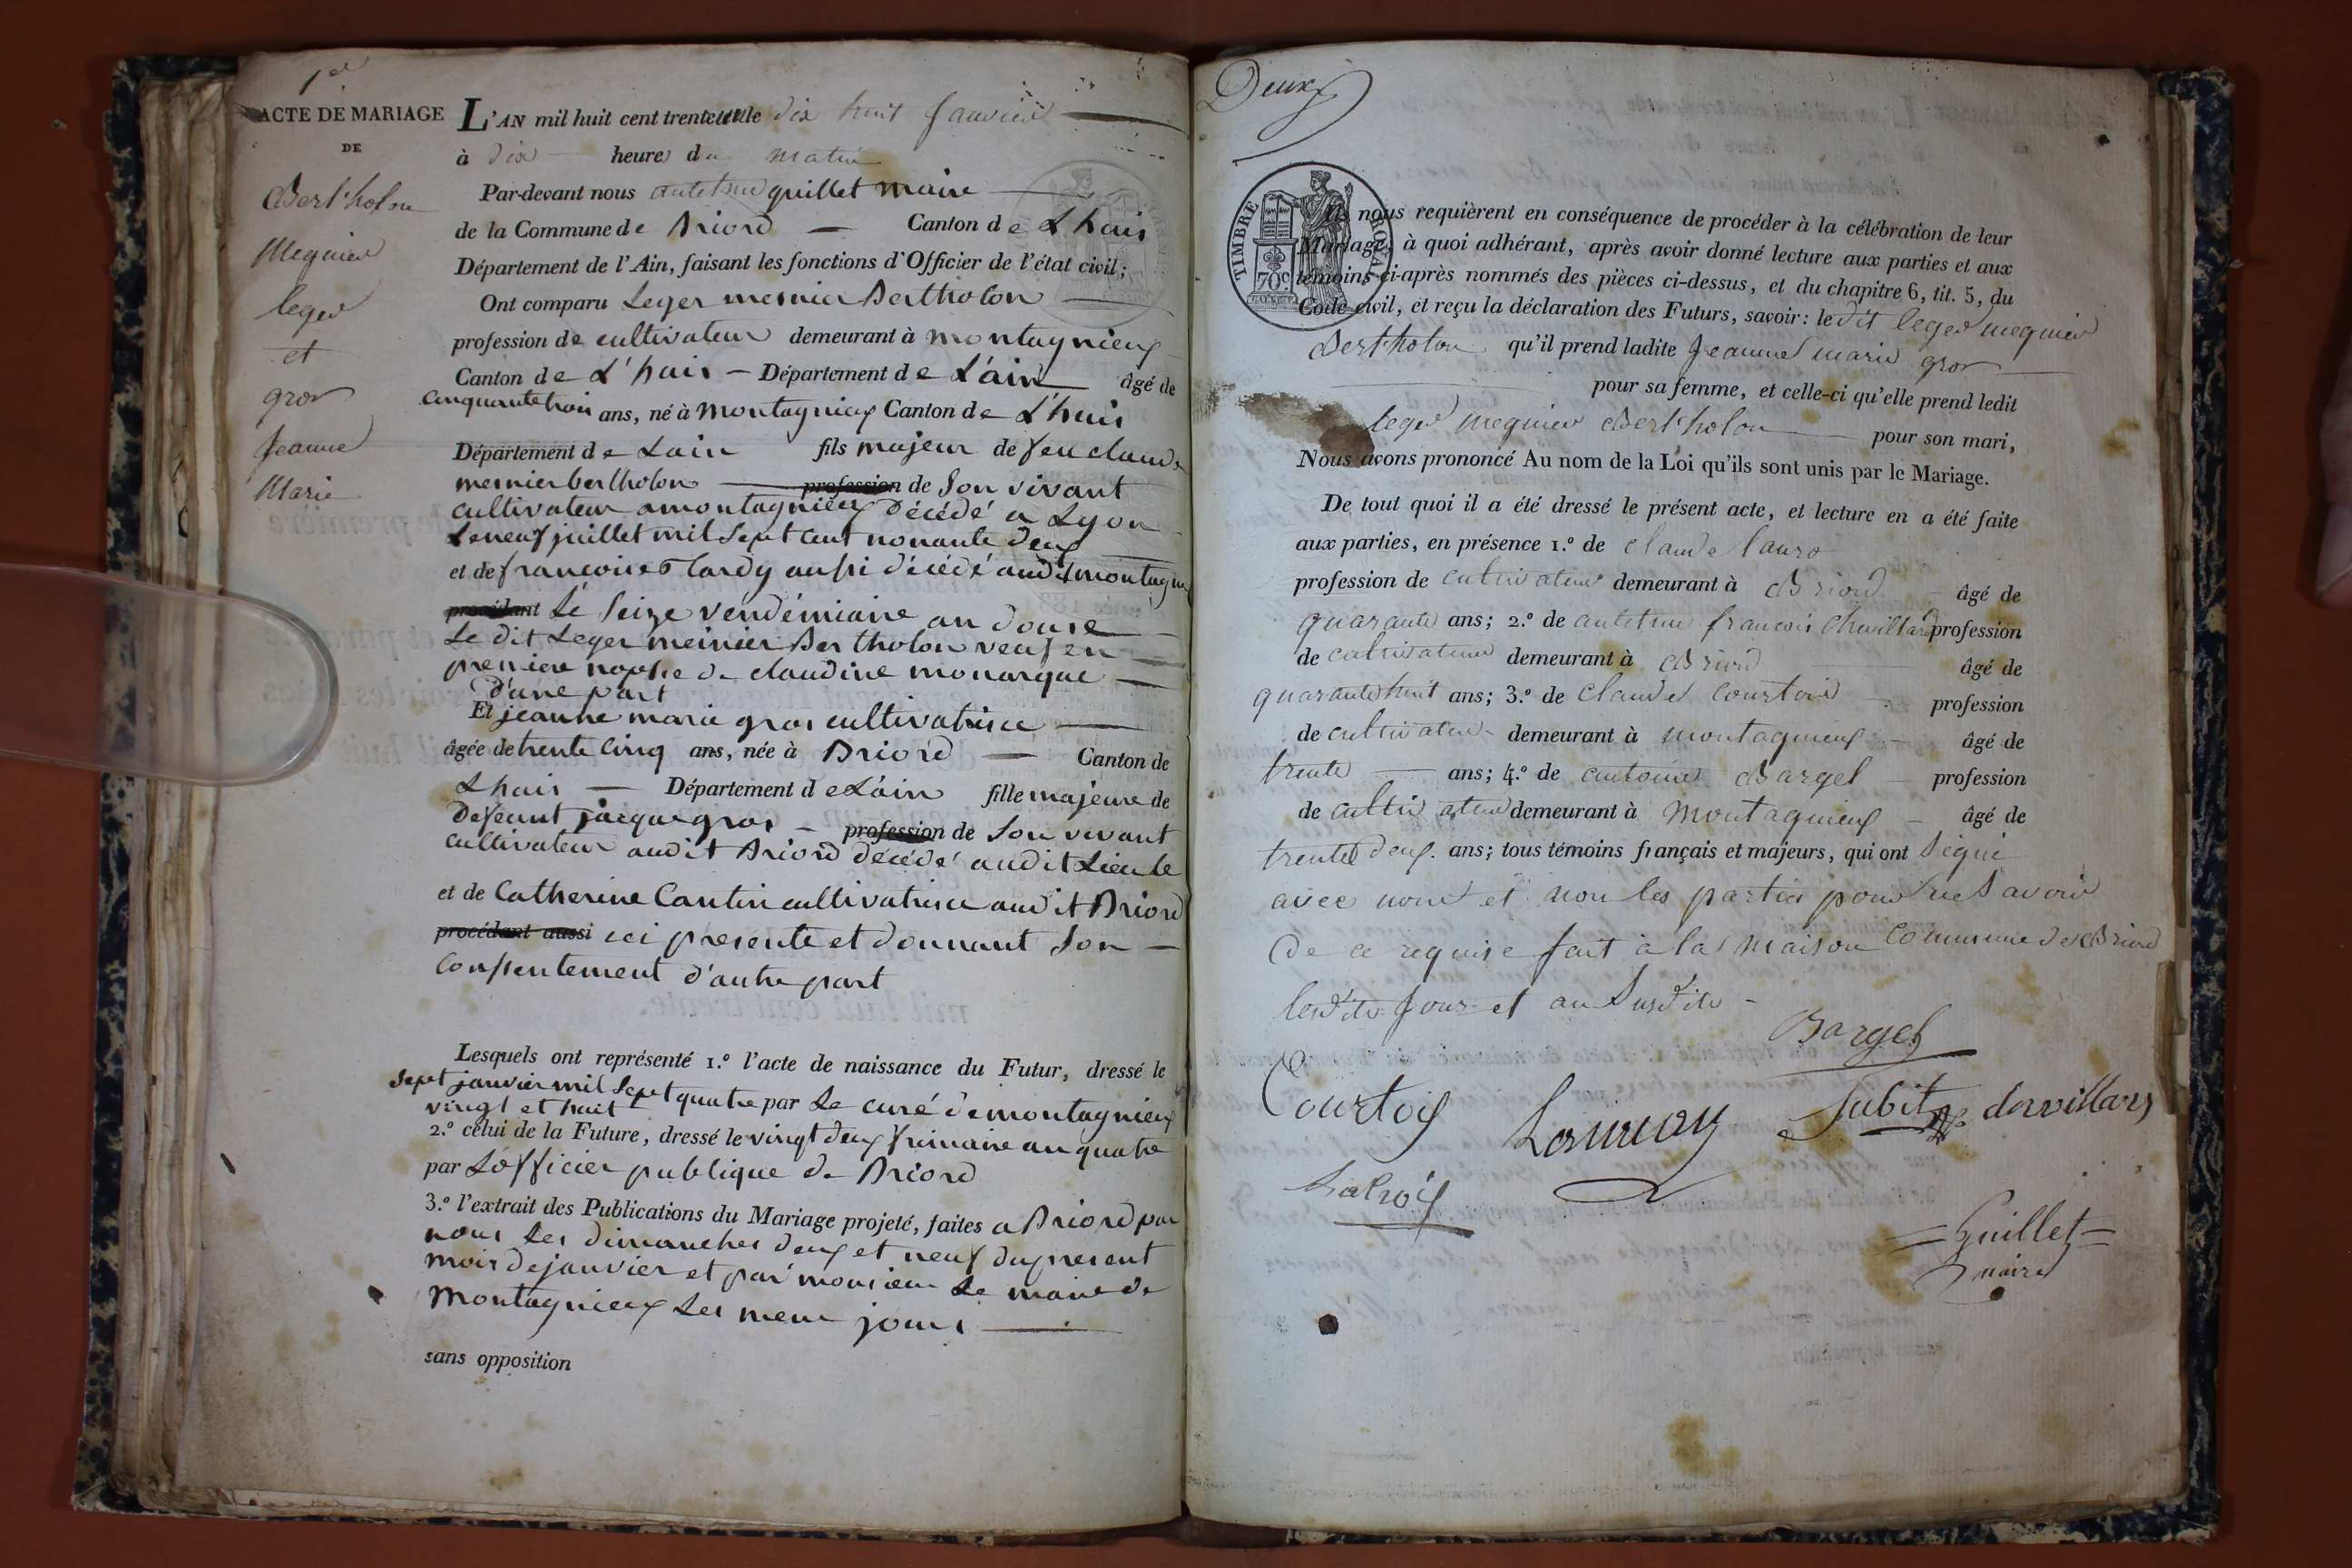 1er
ACTE DE MARIAGE
DE
Bertholon
Megnier
leger
et
gros
Jeanne
Marie
L'AN mil huit cent trente le dix huit Janvier
à dix heures du matin
Par-devant nous antelme quillet maire
de la Commune de Briord Canton de Lhuis
Département de l'Ain, faisant les fonctions d'Officier de l'état civil;
Ont comparu Leger mesnier Bertholon
profession de cultivateur demeurant à montagnieux
Canton de L'huis - Département de L'ain âgé de
cinquante trois ans, né à Montagnieux Canton de L'huis
Département de Lain fils majeur de feu claude
mesnier bertholon profession de Son vivant
cultivateur a montagnieux décédé a Lyon
Le neuf juillet mil Sept cent nonante deux
et de francoise Tardy aussi décédé audit montagnieux
procédant Le Seize vendémiaire an douse
Le dit Leger meinier Bertholon veuf en
premiere nopsse de claudine monarque
d'une part
Et jeanne marie gros cultivatrice
âgée de trente cinq ans, née à Briord Canton de
Lhuis Département de L'ain fille majeure de
defeunt jacque gros - profession de Son vivant
cultivateur audit Briord décédé audit Lieu le
et de Catherine Cantin cultivatrice audit Briord
procédant aussi ici presente et donnant Son
Consentement d'autre part
Lesquels ont représenté 1.º l'acte de naissance du Futur, dressé le
Sept janvier mil Sept quatre par Le curé de montagnieux
vingt et huit
2.º celui de la Future, dressé le vingt deux frimaire an quatre
par L'officier publique de Briord
3.º l'extrait des Publications du Mariage projeté, faites a Briord par
nous Les dimanches deux et neuf du present
mois de janvier et par monsieur Le maire de
Montagnieux Les meme jours
sans opposition
Deux
TIMBRE ROYAL
70c
Ils nous requièrent en conséquence de procéder à la célébration de leur
Mariage, à quoi adhérant, après avoir donné lecture aux parties et aux
témoins ci-après nommés des pièces ci-dessus, et du chapitre 6, tit. 5, du
Code civil, et reçu la déclaration des Futurs, savoir: le dit leger megnier
Bertholon qu'il prend ladite Jeanne marie gros
pour sa femme, et celle-ci qu'elle prend ledit
leger megnier Bertholon pour son mari,
Nous avons prononcé Au nom de la Loi qu'ils sont unis par le Mariage.
De tout quoi il a été dressé le présent acte, et lecture en a été faite
aux parties, en présence 1.º de claude
profession de cultivateur demeurant à Briord âgé de
quarante ans; 2.º de antelme francois profession
de cultivateur demeurant à Briord âgé de
quarante huit ans; 3.º de Claude Courtois profession
de cultivateur demeurant à montagnieux âgé de
trente ans; 4.º de antoine Bargel profession
de cultivateur demeurant à Montagnieux - âgé de
trente deux ans; tous témoins français et majeurs, qui ont Signé
avec nous et non les parties pour ne Savoir
de ce requise fait à la maison commune de Briord
lesdits Jour et an Susdits -
Bargel
Courtois
Guillet
maire